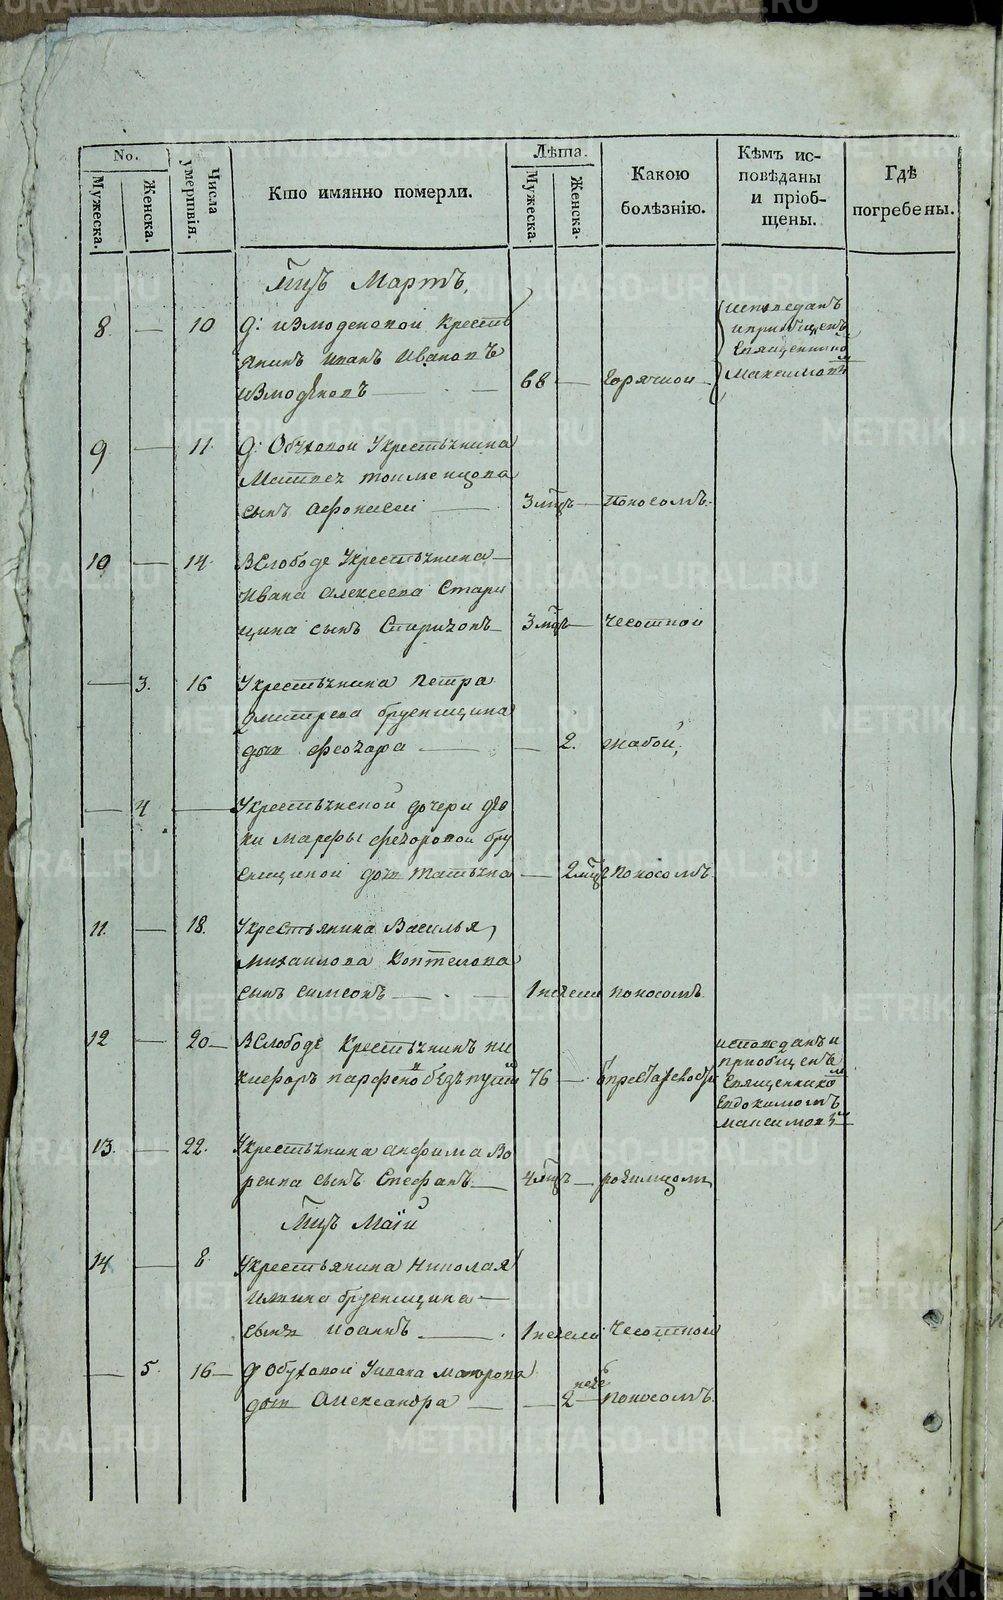 No.
Мужеска.
Женска.
Числа умертвія.
Кто имянно померли.
Лѣта.
Мужеска.
Женска.
Какою болѣзнію.
Кѣмъ ис-
повѣданы
и пріоб-
щены.
Гдѣ
погребены.
Мцъ Мартъ.
8. — 10 Д: Измоденовой Кресть
янинъ Иванъ Ивановъ
Измоденовъ — 68 — горячкой
исповеданъ
и приобщенъ
Священником
Максимовым
9 — 11. Д: Обуховой У крестьянина
Матвея
сынъ Афонасей — 3 мцъ — Поносомъ.
10 — 14. В Слободе У крестьянина
Ивана Алексеева Стари
цина сынъ Спиридонъ 3 мцъ чесоткой
— 3. 16 У крестьянина Петра
Дмитрева Брусницина
дочь Феодора — — 2. жабой,
— 4 — У крестьянской дочери дев
ки Марфы Федоровой Бру
сницыной дочь Татьяна — 2 мцъ Поносомъ
11. — 18. У крестьянина Василья
Михаилова Коптелова
сынъ Симеонъ — 1 недели поносомъ
12 — 20 В Слободе Крестьянинъ Ни
кифоръ Парфенов 76 —
исповеданъ и
приобщенъ
Священником
Евдокимомъ
Максимовым
13. — 22. У крестьянина Анфима
сынъ Стефанъ — 4 мцъ — родимцомъ
Мцъ Маій
14 — 8. У крестьянина Николая
Ильина Брусницина
сынъ Иоаннъ — 1 недели Чесоткой
— 5. 16 Д Обуховой У
дочь Александра — — 2 неде Поносомъ
METRIKI.GASO-URAL.RU